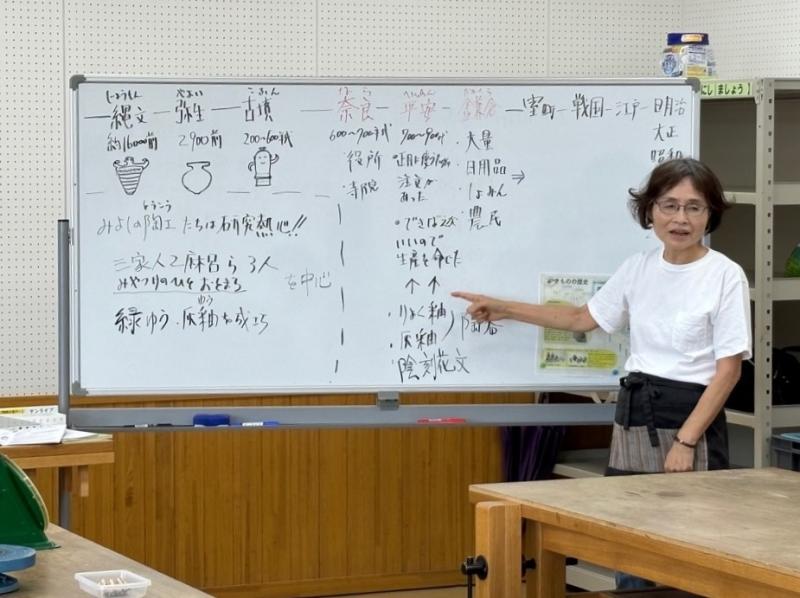 じょうもん やよい こふん なら へいあん かまくら
縄文 ― 弥生 ― 古墳 ― 奈良 ― 平安 ― 鎌倉 ― 室町 ― 戦国 ― 江戸 ― 明治
大正
昭和
約16000前 2900前 200~600年代 600~700年代 900~900代 ・大量
・役所
・寺院
注文が
あった
・日用品
・しょみん
・農民
⇒
とうこう
みよしの陶工たちは研究熱心!!
いいので
生産を命じた
三家人乙麻呂ら3人
を中心
↑ ↑
ゆう
緑ゆう・灰釉を成功
・りょく釉
・灰釉
陶器
陰刻花文
やきものの歴史
にしましょう